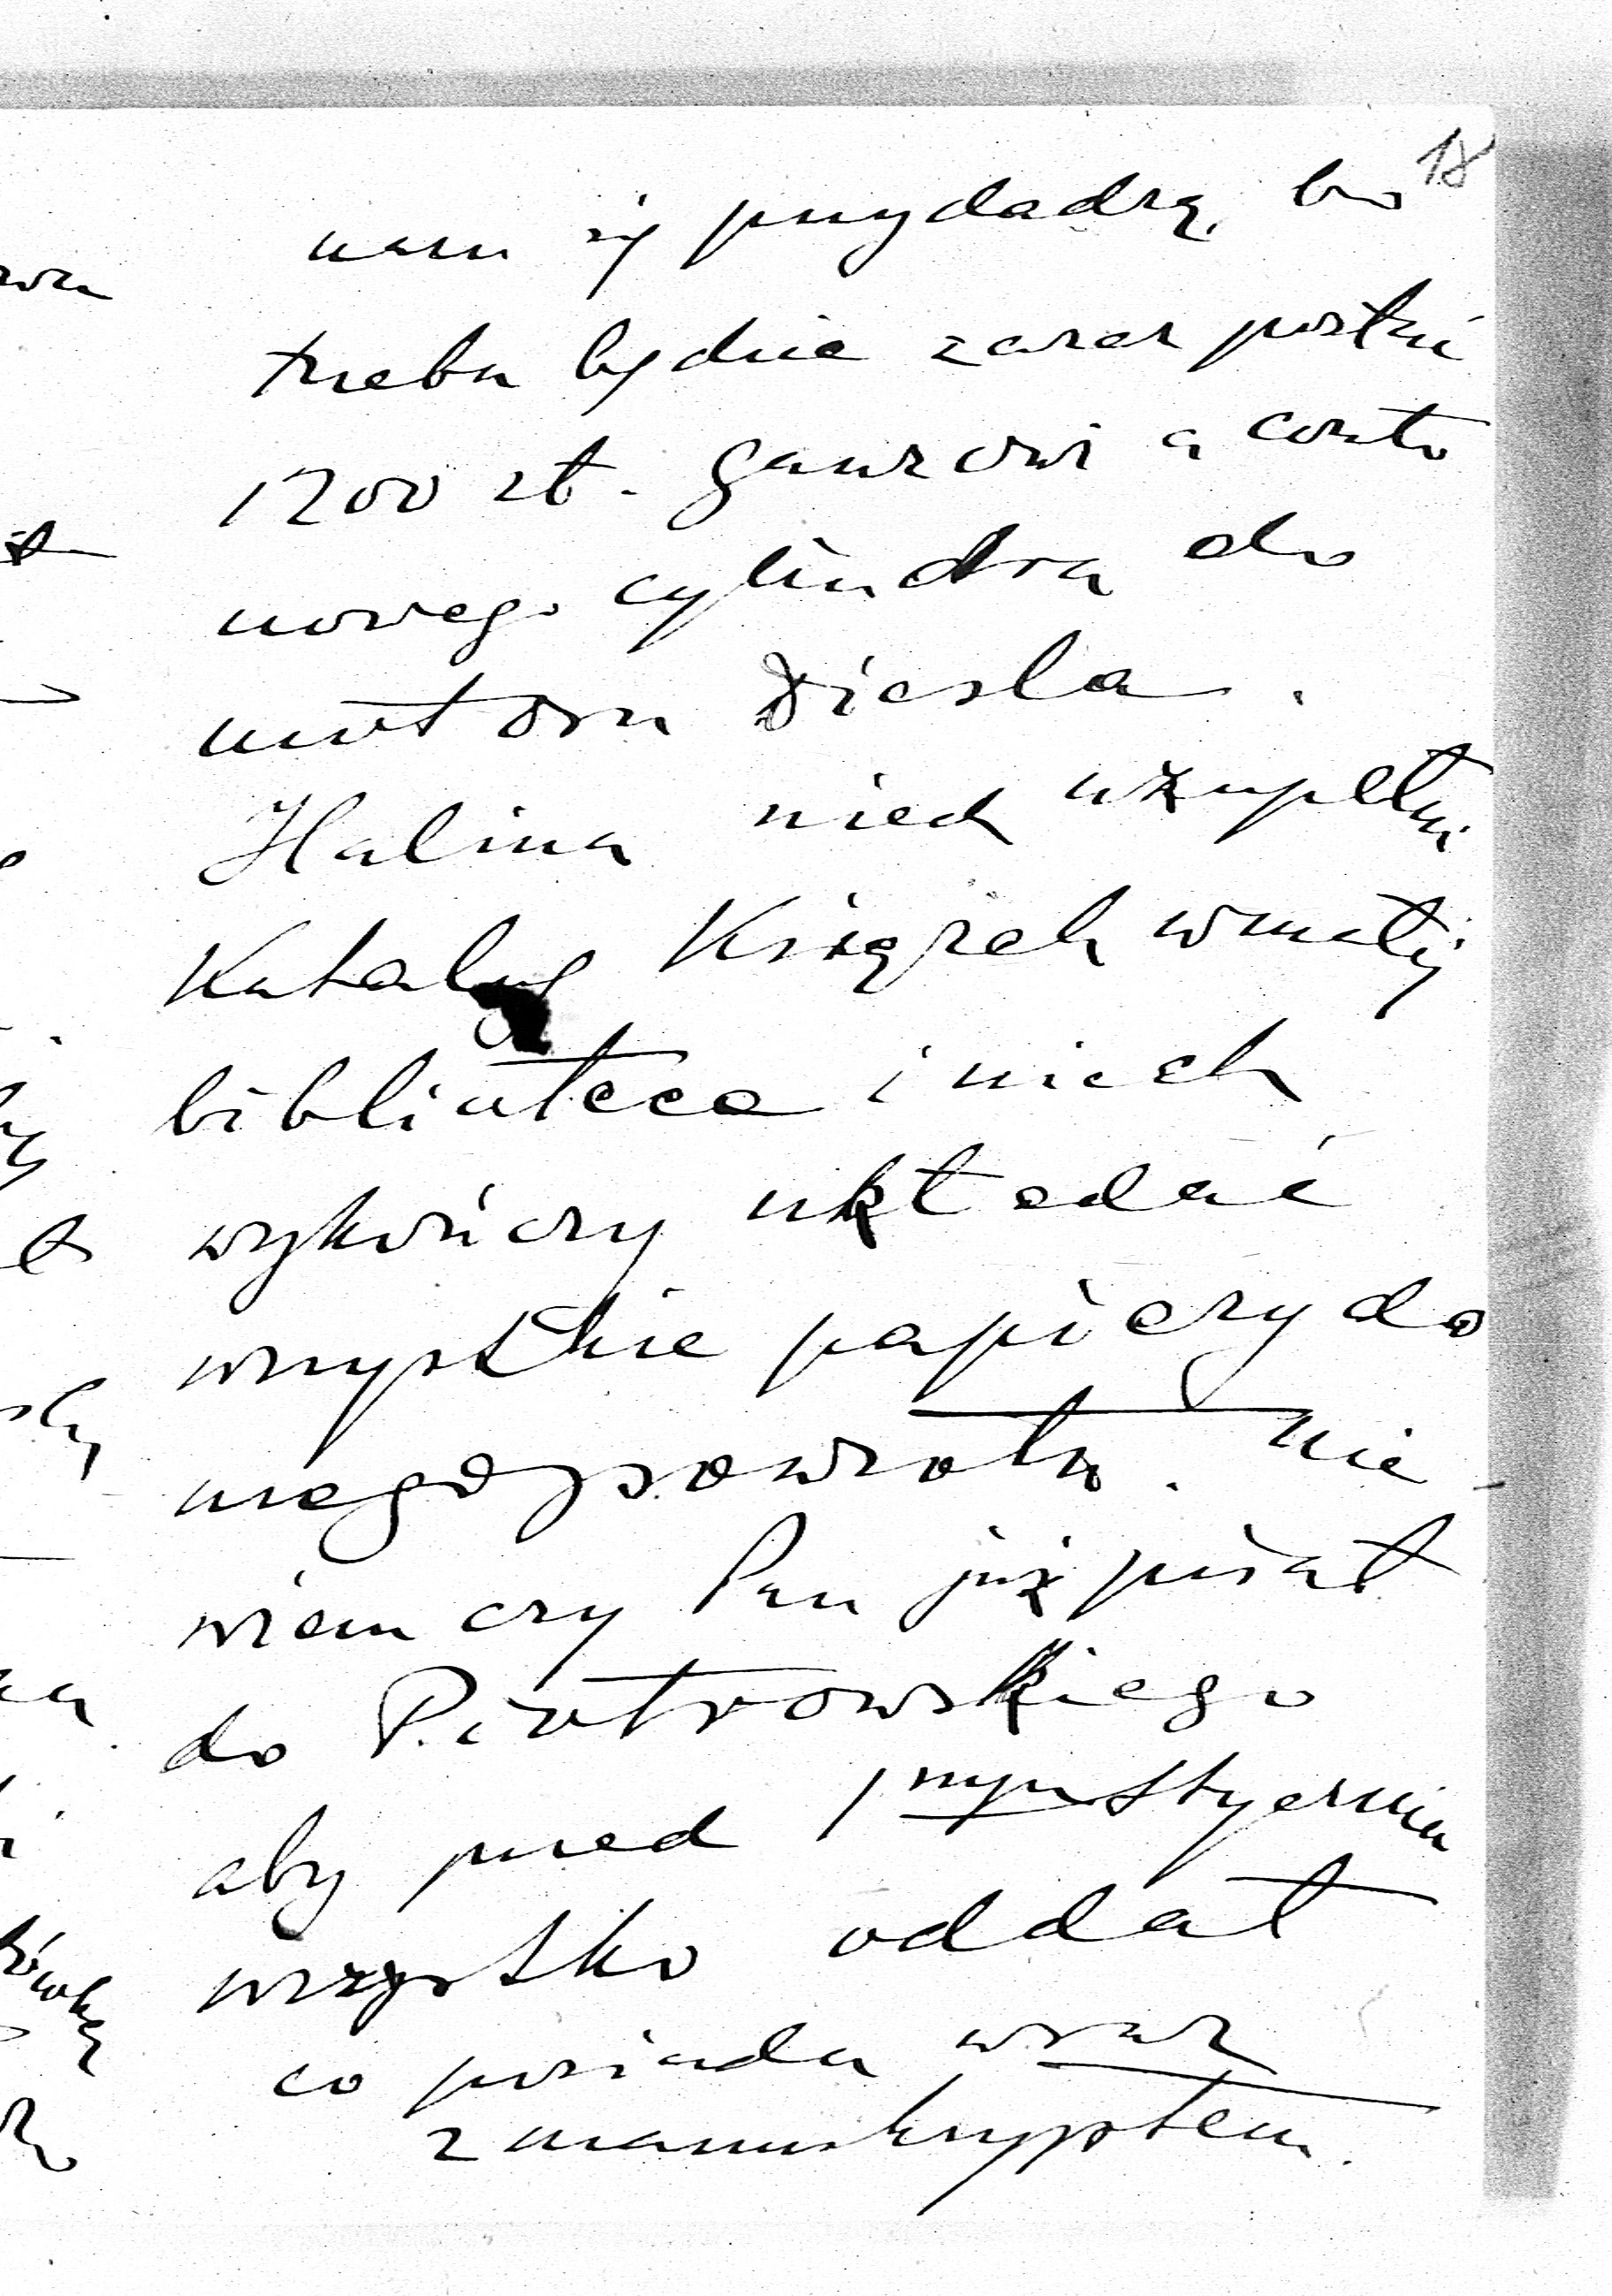 18
nam się przydadzą, bo
trzeba będzie zaraz posłać
1200 zł. Ganzowi a conto
nowego cylindra do
motoru Diesla.
Halina niech uzupełni
Katalog Książek w małej
bibliotece i niech
wykończy układać
wszystkie papiery do
mego powrotu. Nie
wiem czy Pan już pisał
do Piotrowskiego
aby przed 1 stycznia
wszystko oddał
co posiada wraz
z manuskryptem.